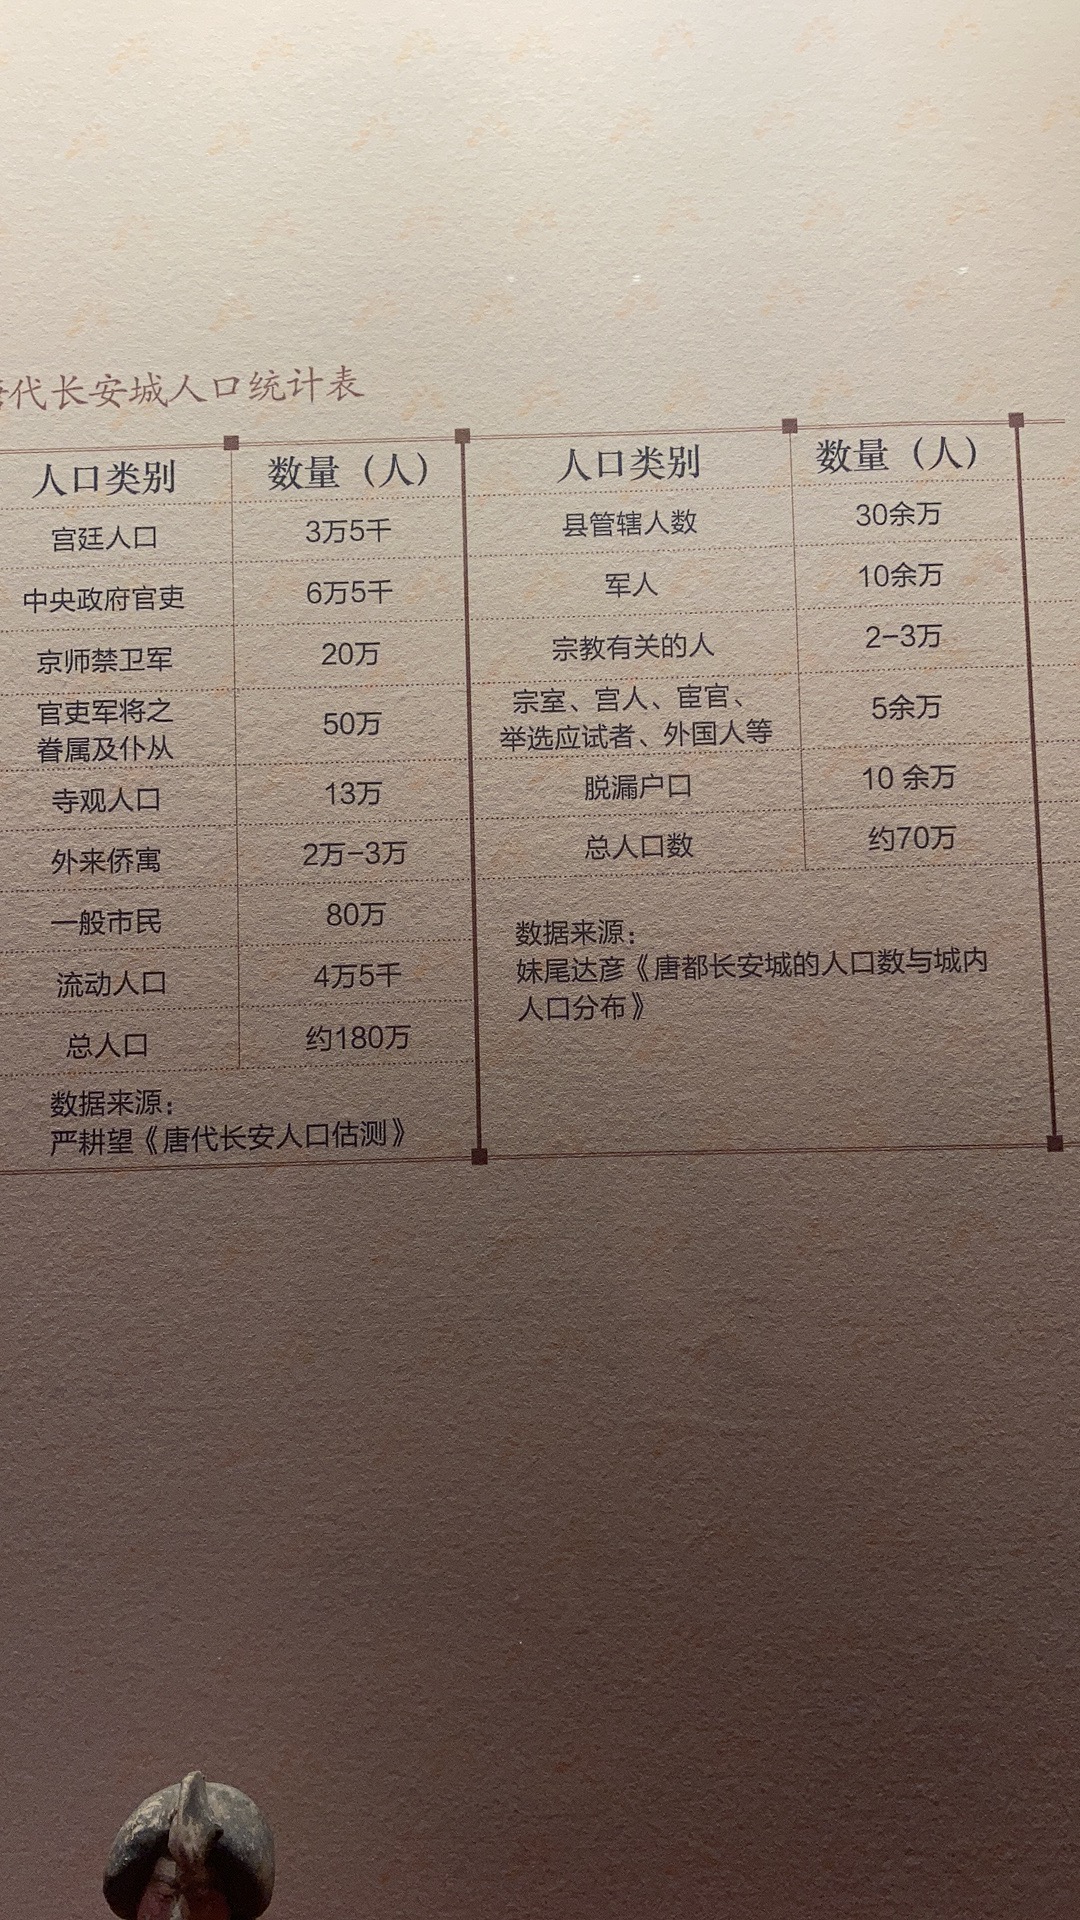 代长安城人口统计表
人口类别 数量（人）
宫廷人口 3万5千
中央政府官吏 6万5千
京师禁卫军 20万
官吏军将之
眷属及仆从 50万
寺观人口 13万
外来侨寓 2万-3万
一般市民 80万
流动人口 4万5千
总人口 约180万
数据来源：
严耕望《唐代长安人口估测》
人口类别 数量（人）
县管辖人数 30余万
军人 10余万
宗教有关的人 2-3万
宗室、宫人、宦官、
举选应试者、外国人等 5余万
脱漏户口 10 余万
总人口数 约70万
数据来源：
妹尾达彦《唐都长安城的人口数与城内
人口分布》